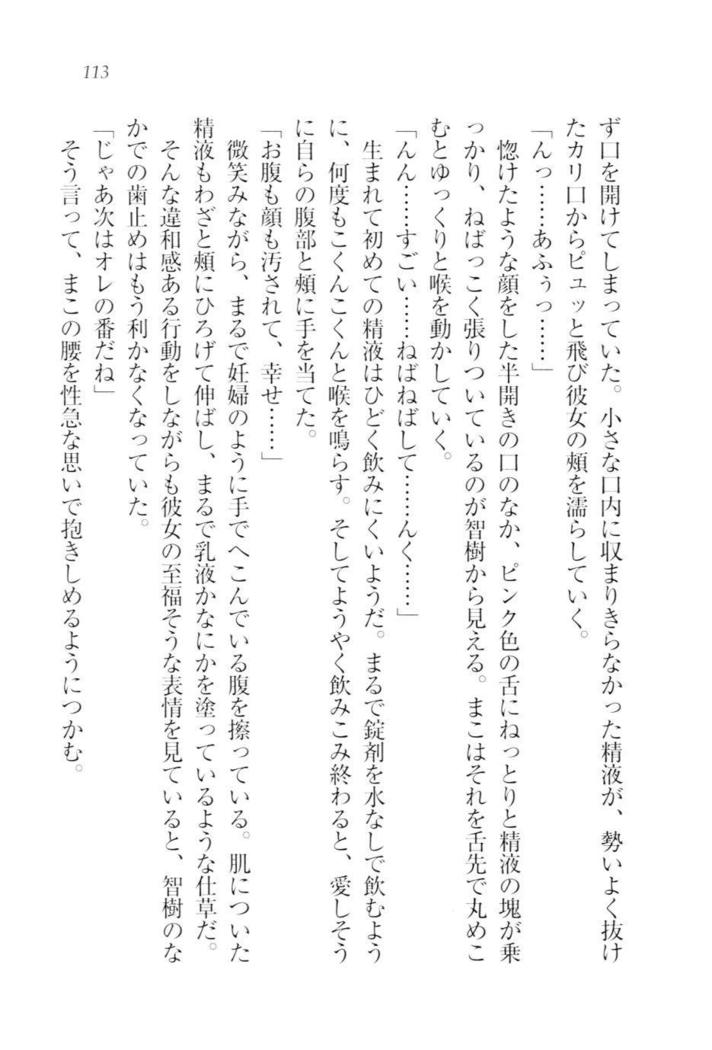 113
ず口を開けてしまっていた。小さな口内に収まりきらなかった精液が、勢いよく抜け
たカリ口からピュッと飛び彼女の頬を濡らしていく。
「んっ……あふぅっ……」
惚けたような顔をした半開きの口のなか、ピンク色の舌にねっとりと精液の塊が乗
っかり、ねばっこく張りついているのが智樹から見える。まこはそれを舌先で丸めこ
むとゆっくりと喉を動かしていく。
「んん……すごい……ねばねばして……んく……」
生まれて初めての精液はひどく飲みにくいようだ。まるで錠剤を水なしで飲むよう
に、何度もこくんこくんと喉を鳴らす。そしてようやく飲みこみ終わると、愛しそう
に自らの腹部と頬に手を当てた。
「お腹も顔も汚されて、幸せ……」
微笑みながら、まるで妊婦のように手でへこんでいる腹を擦っている。肌についた
精液もわざと頬にひろげて伸ばし、まるで乳液かなにかを塗っているような仕草だ。
そんな違和感ある行動をしながらも彼女の至福そうな表情を見ていると、智樹のな
かでの歯止めはもう利かなくなっていた。
「じゃあ次はオレの番だね」
そう言って、まこの腰を性急な思いで抱きしめるようにつかむ。